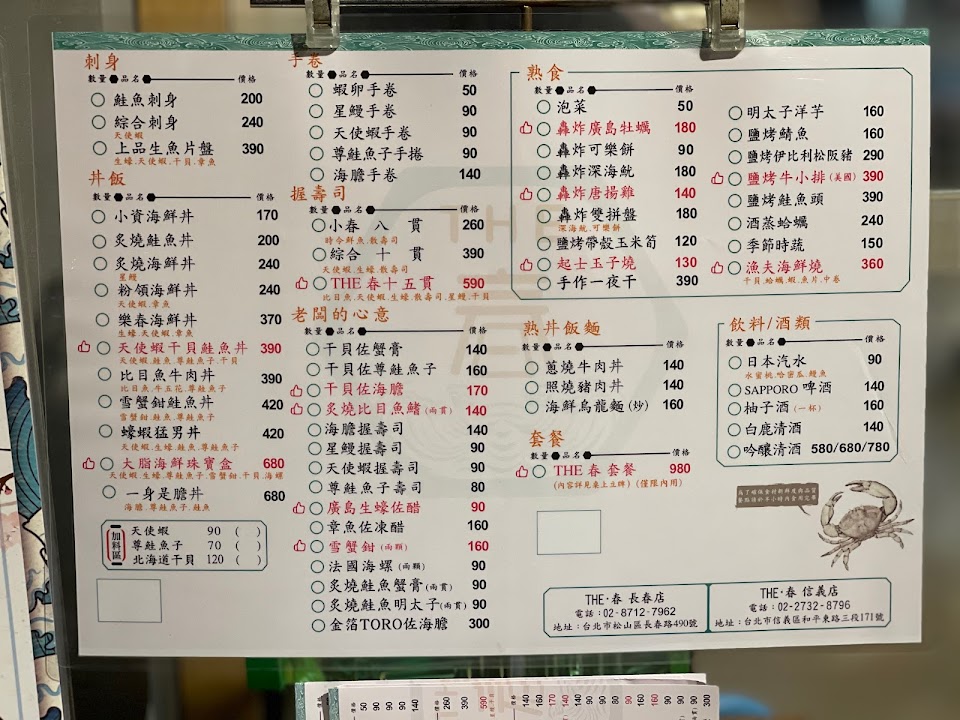 刺身
數量 品名 價格
鮭魚刺身 200
綜合刺身 240
天使蝦
上品生魚片盤 390
生蠔.天使蝦.干貝.章魚
丼飯
數量 品名 價格
小資海鮮丼 170
炙燒鮭魚丼 200
炙燒海鮮丼 240
星鰻
粉領海鮮丼 240 290
天使蝦.章魚
樂春海鮮丼 370
生蠔.天使蝦.章魚
天使蝦干貝鮭魚丼 390
天使蝦.鮭魚.尊鮭魚子.干貝
比目魚牛肉丼 390
比目魚.牛五花.尊鮭魚子
雪蟹鉗鮭魚丼 420
雪蟹鉗.鮭魚.尊鮭魚子
蠔蝦猛男丼 420
天使蝦.生蠔.鮭魚.尊鮭魚子
大脂海鮮珠寶盒 680
天使蝦.生蠔.尊鮭魚子.雪蟹鉗.干貝.海螺
一身是膽丼 680
海膽.尊鮭魚子.鮭魚
加料區
天使蝦 90 ( )
尊鮭魚子 70 ( )
北海道干貝 120 ( )
手卷
數量 品名 價格
蝦卵手卷 50
星鰻手卷 90
天使蝦手卷 90
尊鮭魚子手捲 90
海膽手卷 140
握壽司
數量 品名 價格
小春八貫 260
時令鮮魚.散壽司
綜合十貫 390
天使蝦.生蠔.散壽司
THE春十五貫 590
比目魚.天使蝦.生蠔.散壽司.星鰻.干貝
老闆的心意
數量 品名 價格
干貝佐蟹膏 140
干貝佐尊鮭魚子 160
干貝佐海膽 170
炙燒比目魚鰭(兩貫) 140
海膽握壽司 140
星鰻握壽司 90
天使蝦握壽司 90
尊鮭魚子壽司 80
廣島生蠔佐醋 90
章魚佐凍醋 160
雪蟹鉗(兩顆) 160
法國海螺(兩顆) 90
炙燒鮭魚蟹膏(兩貫) 90
炙燒鮭魚明太子(兩貫) 90
金箔TORO佐海膽 300
熟食
數量 品名 價格
泡菜 50
轟炸廣島牡蠣 180
轟炸可樂餅 90
轟炸深海魷 180
轟炸唐揚雞 140
轟炸雙拼盤 180
深海魷.可樂餅
鹽烤帶殼玉米筍 120
起士玉子燒 130
手作一夜干 390
明太子洋芋 160
鹽烤鯖魚 160
鹽烤伊比利松阪豬 290
鹽烤牛小排(美國) 390
鹽烤鮭魚頭 390
酒蒸蛤蠣 240
季節時蔬 150
漁夫海鮮燒 360
干貝.蛤蠣.蝦.魚片.中卷
熟丼飯麵
數量 品名 價格
蔥燒牛肉丼 140
照燒豬肉丼 140
海鮮烏龍麵(炒) 160
套餐
數量 品名 價格
THE春 套餐 980
(內容詳見桌上立牌) (僅限內用)
飲料/酒類
數量 品名 價格
日本汽水 90
水蜜桃.哈密瓜.彈珠
SAPPORO 啤酒 140
柚子酒(一杯) 160
白鹿清酒 140
吟釀清酒 580/680/780
THE‧春 長春店
電話:02-8712-7962
地址:台北市松山區長春路490號
THE‧春 信義店
電話:02-2732-8796
地址:台北市信義區和平東路三段171號